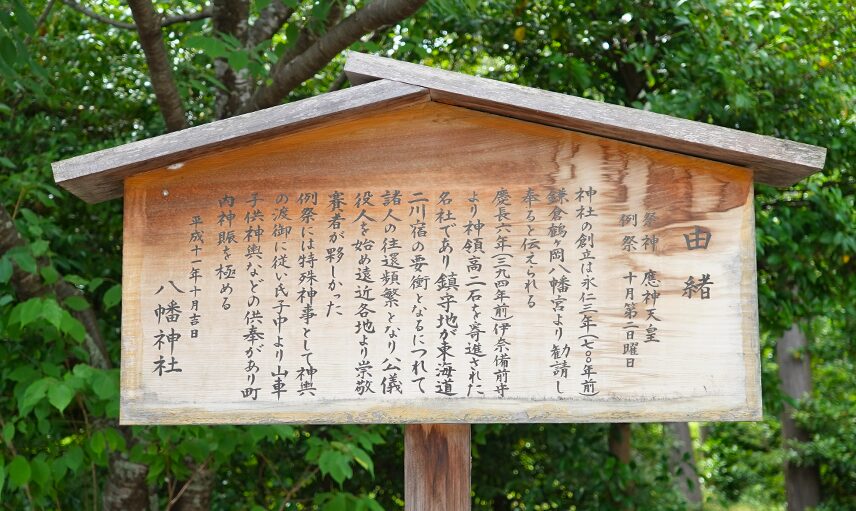 由緒
祭神 應神天皇
例祭 十月第二日曜日
神社の創立は永仁三年(七〇〇年前)
鎌倉鶴ヶ岡八幡宮より勧請し
奉ると伝えられる
慶長六年(三九四年前)伊奈備前守
より神領高二石を寄進された
名社であり鎮守地が東海道
二川宿の要衝となるにつれて
諸人の往還頻繁となり公儀
役人を始め遠近各地より崇敬
賽者が夥しかった
例祭には特殊神事として神輿
の渡御に従い氏子中より山車
子供神輿などの供奉があり町
内神賑を極める
平成十一年十月吉日
八幡神社